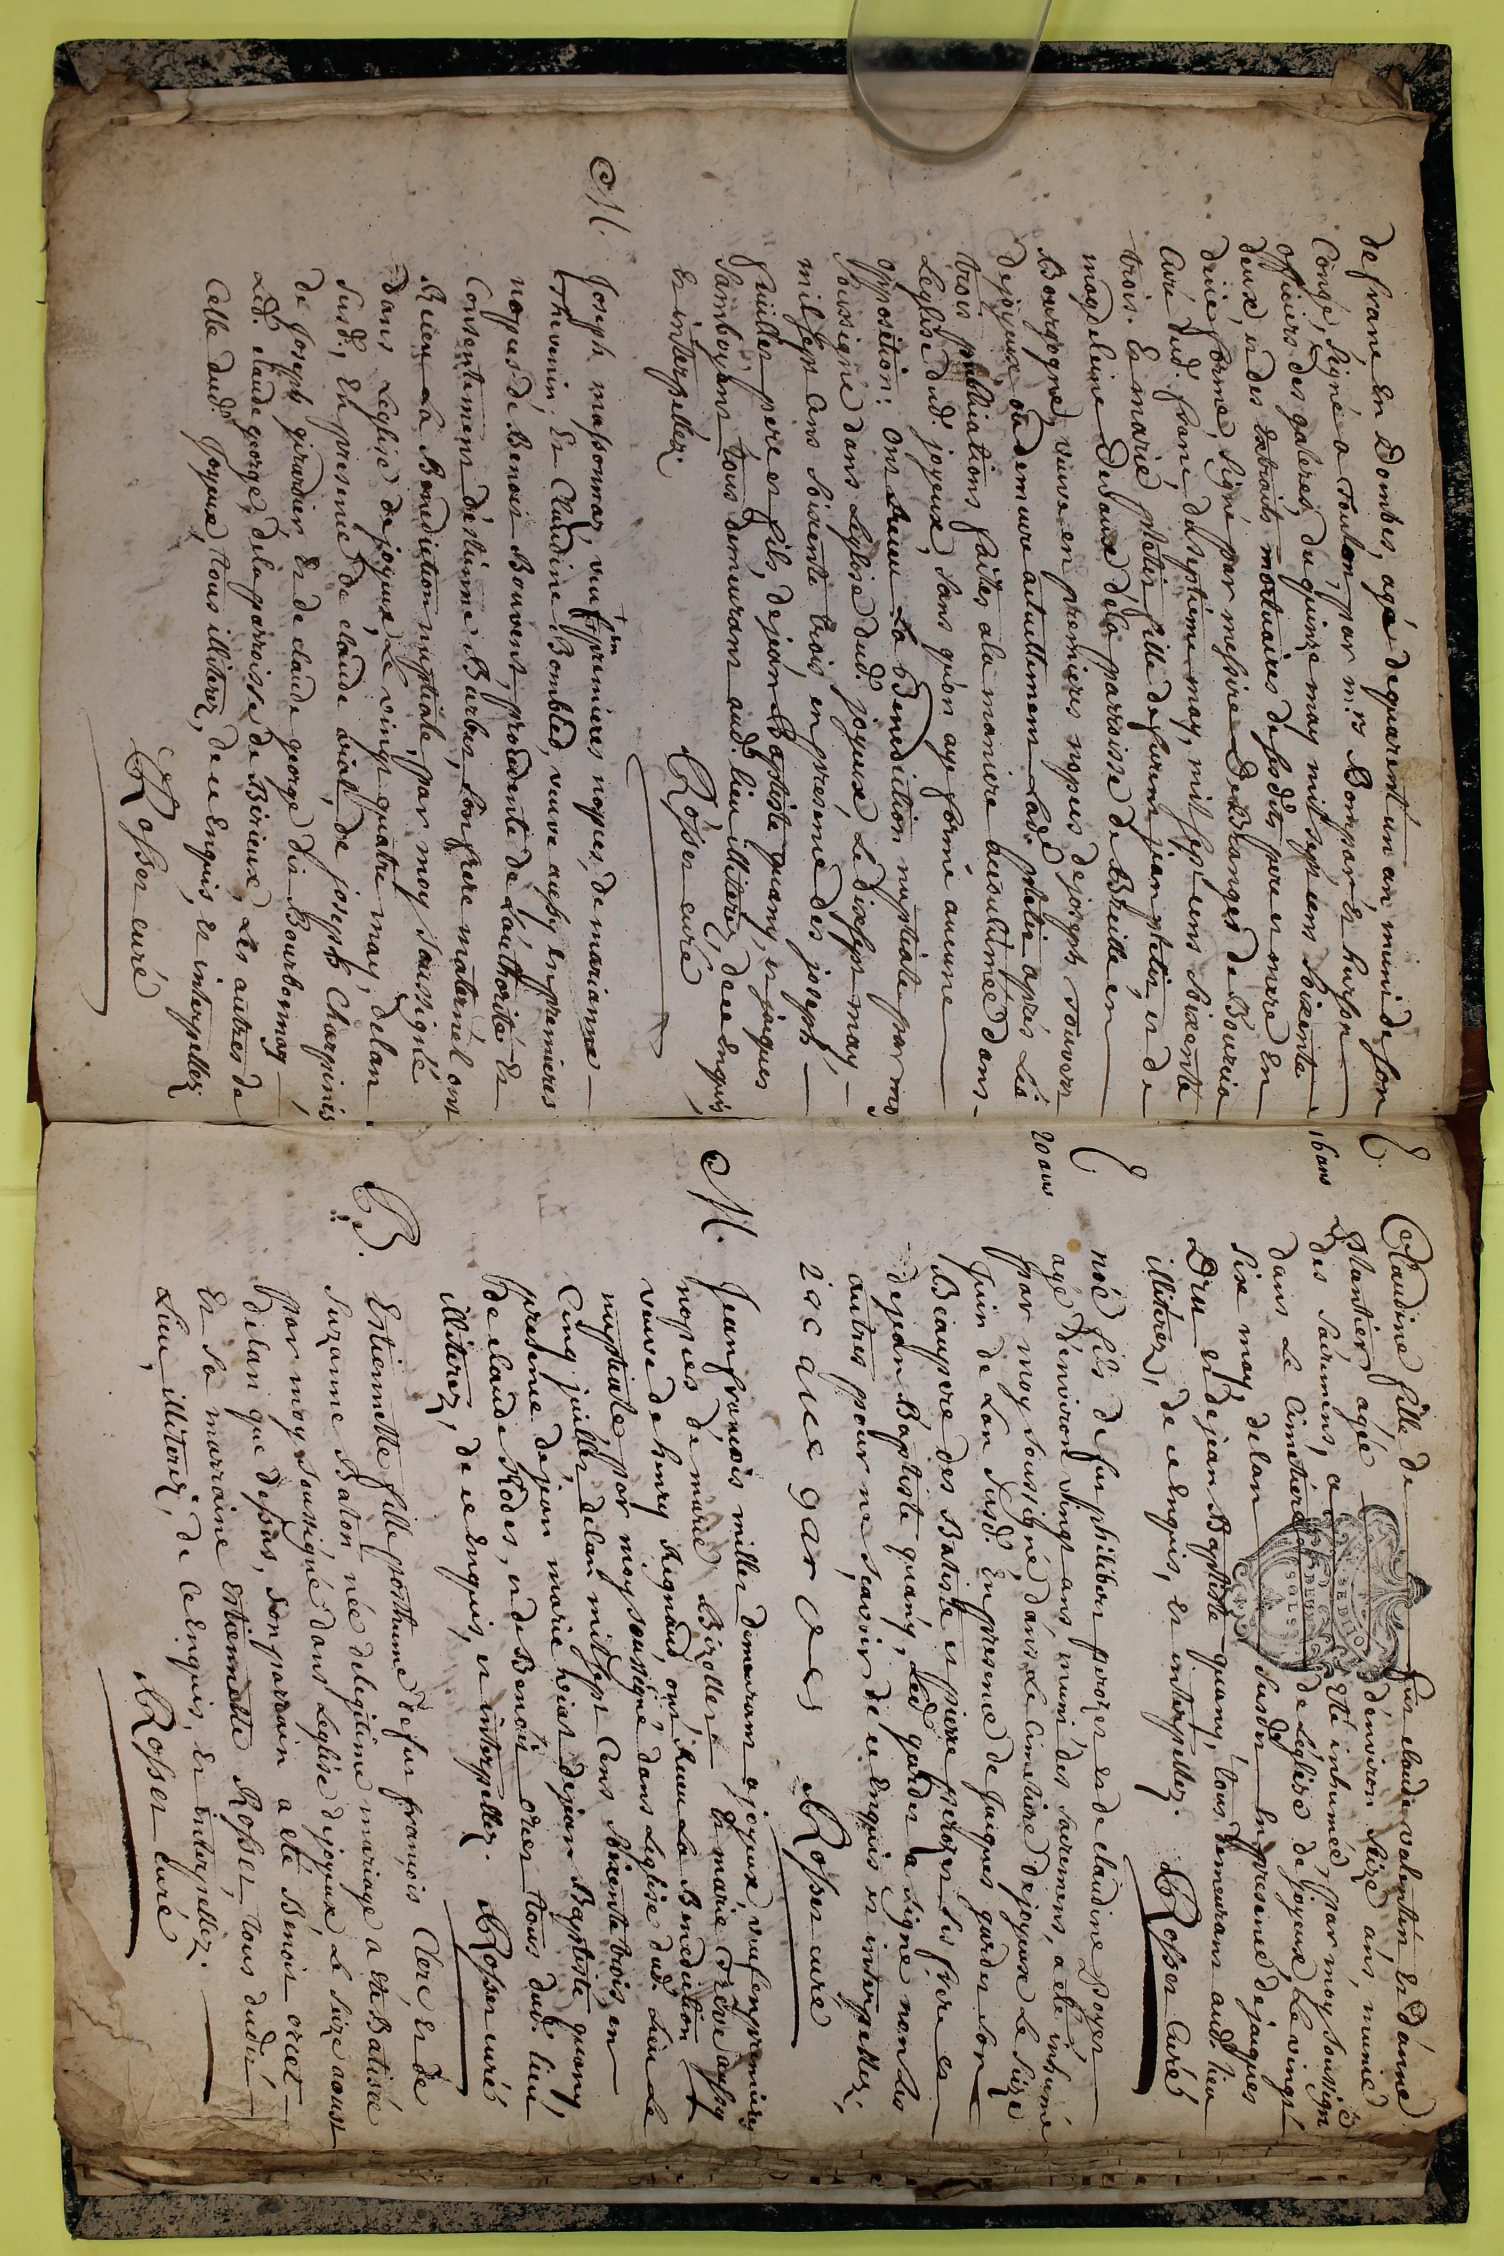 de frane En Dombes, agé de quarent'un an muni de son
Congé, signé a Toulon, par mrs Bompar, Et hurson
officiers des galeres, du quinze may mil sept cens soixente
deux, et des Extraits mortuaires de ses dits pere et mere En
düe forme, signé par messire DesBranges de Bourcia
curé dud. frane du septième may, mil sept cens soixente
trois. Et marie platin fille de furent jean platin, et de
magdeleine Devaux de la parroisse de Breille en
Bourgogne, veuve en premieres nopces de joseph Bouvert
de joyeux ou demeure actuellement lade. platin après les
trois publications faites a la maniere accoutumée dans
Leglise dud. joyeux, sans qu'on aye formé aucune
opposition: ont Receu La Benediction nuptiale par moy
soussigné dans Leglise dud. joyeux Le dix sept may,
mil sept cens soixente trois, en presence des joseph
Guillet pere et fils, de jean Baptiste quany, et jaques
Samboyant tous demeurant aud. lieu illiterez, de ce enquis,
Et interpellez.
Rosset curé
M.
Joseph massonnaz, veuf en premieres nopces, de marianne
Thevenin. Et Claudine Bombled, veuve aussy en premieres
nopces de Benoit Bouvent, procedente de L'authorité Et
Consentement d'estienne Barbet, son frere maternel ont
Receu La Benediction nuptiale, par moy soussigné
dans Leglise de joyeux, Le vingt quatre may, delan
susd., En presence de claude vial, de joseph Charpines
de Joseph girardier, Et de claude george dit Bourbonnay,
Led. claude george, de la parroisse de Birieux, Les autres de
Celle dud. Joyeux, tous illiterez, de ce Enquis, et interpellez
Rosset curé
E.
16 ans
Claudine fille de fut claude valentin, Et d'anne
Plantier agée d'environ seize ans, munie
des sacremens, a Eté inhumée, par moy soussigné
dans Le Cimetiere de Leglise de joyeux, Le vingt
six may, delan susd. En presence de jacques
Dru et de jean Baptiste quany, tous demeurans aud. lieu
illiterez, de ce Enquis, et interpellez. Rosset curé
E.
20 ans
noé fils de fut philibert perozet et de claudine Boyer
agé d'environ vingt ans, muni, des sacremens, a eté inhumé
par moy soussigné dans Le cimetiere de joyeux Le seize
juin de Lan susd. En presence de Jacques gardet son
Beaupere des Batiste et pierre perozet ses frere et
de jean Baptiste quany, Led. gardet a signé non les
autres pour ne scavoir de ce Enquis et interpellez.
jacque gardet Rosset curé
M.
Jean francois millet demeurant a joyeux, veuf en premieres
nopces de marie Birollet Et marie Greve aussy
veuve de henry Rignaud, ont Receu La Benediction
nuptiale par moy soussigné dans Leglise dud. Lieu Le
Cinq juillet delan mil sept Cens soixente trois en
presence de jean marie viat de jean Baptiste quany,
de claude Rodet, et de Benoit orcet tous dud. lieu
illiterez, de ce Enquis, et interpellez. Rosset curé
B.
Estiennette fille posthume de fut francois Clerc, Et de
suzanne Baton née de legitime mariage a eté Batisée
par moy soussigné dans Leglise de joyeux Le seize aoust
delan que dessus, son parrain a eté Benoit orcet
Et sa marraine Estiennette Rosset, tous dudit
Lieu, illiterez, de ce Enquis, Et interpellez.
Rosset curé